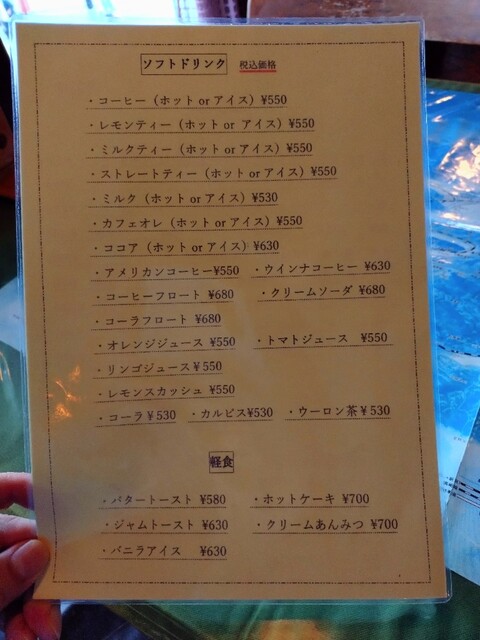 ソフトドリンク 税込価格
・コーヒー（ホット or アイス）¥550
・レモンティー（ホット or アイス）¥550
・ミルクティー（ホット or アイス）¥550
・ストレートティー（ホット or アイス）¥550
・ミルク（ホット or アイス）¥530
・カフェオレ（ホット or アイス）¥550
・ココア（ホット or アイス）¥630
・アメリカンコーヒー¥550 ・ウインナコーヒー ¥630
・コーヒーフロート ¥680 ・クリームソーダ ¥680
・コーラフロート ¥680
・オレンジジュース ¥550 ・トマトジュース ¥550
・リンゴジュース¥550
・レモンスカッシュ ¥550
・コーラ¥530 ・カルピス¥530 ・ウーロン茶¥530
軽食
・バタートースト ¥580 ・ホットケーキ ¥700
・ジャムトースト ¥630 ・クリームあんみつ ¥700
・バニラアイス ¥630